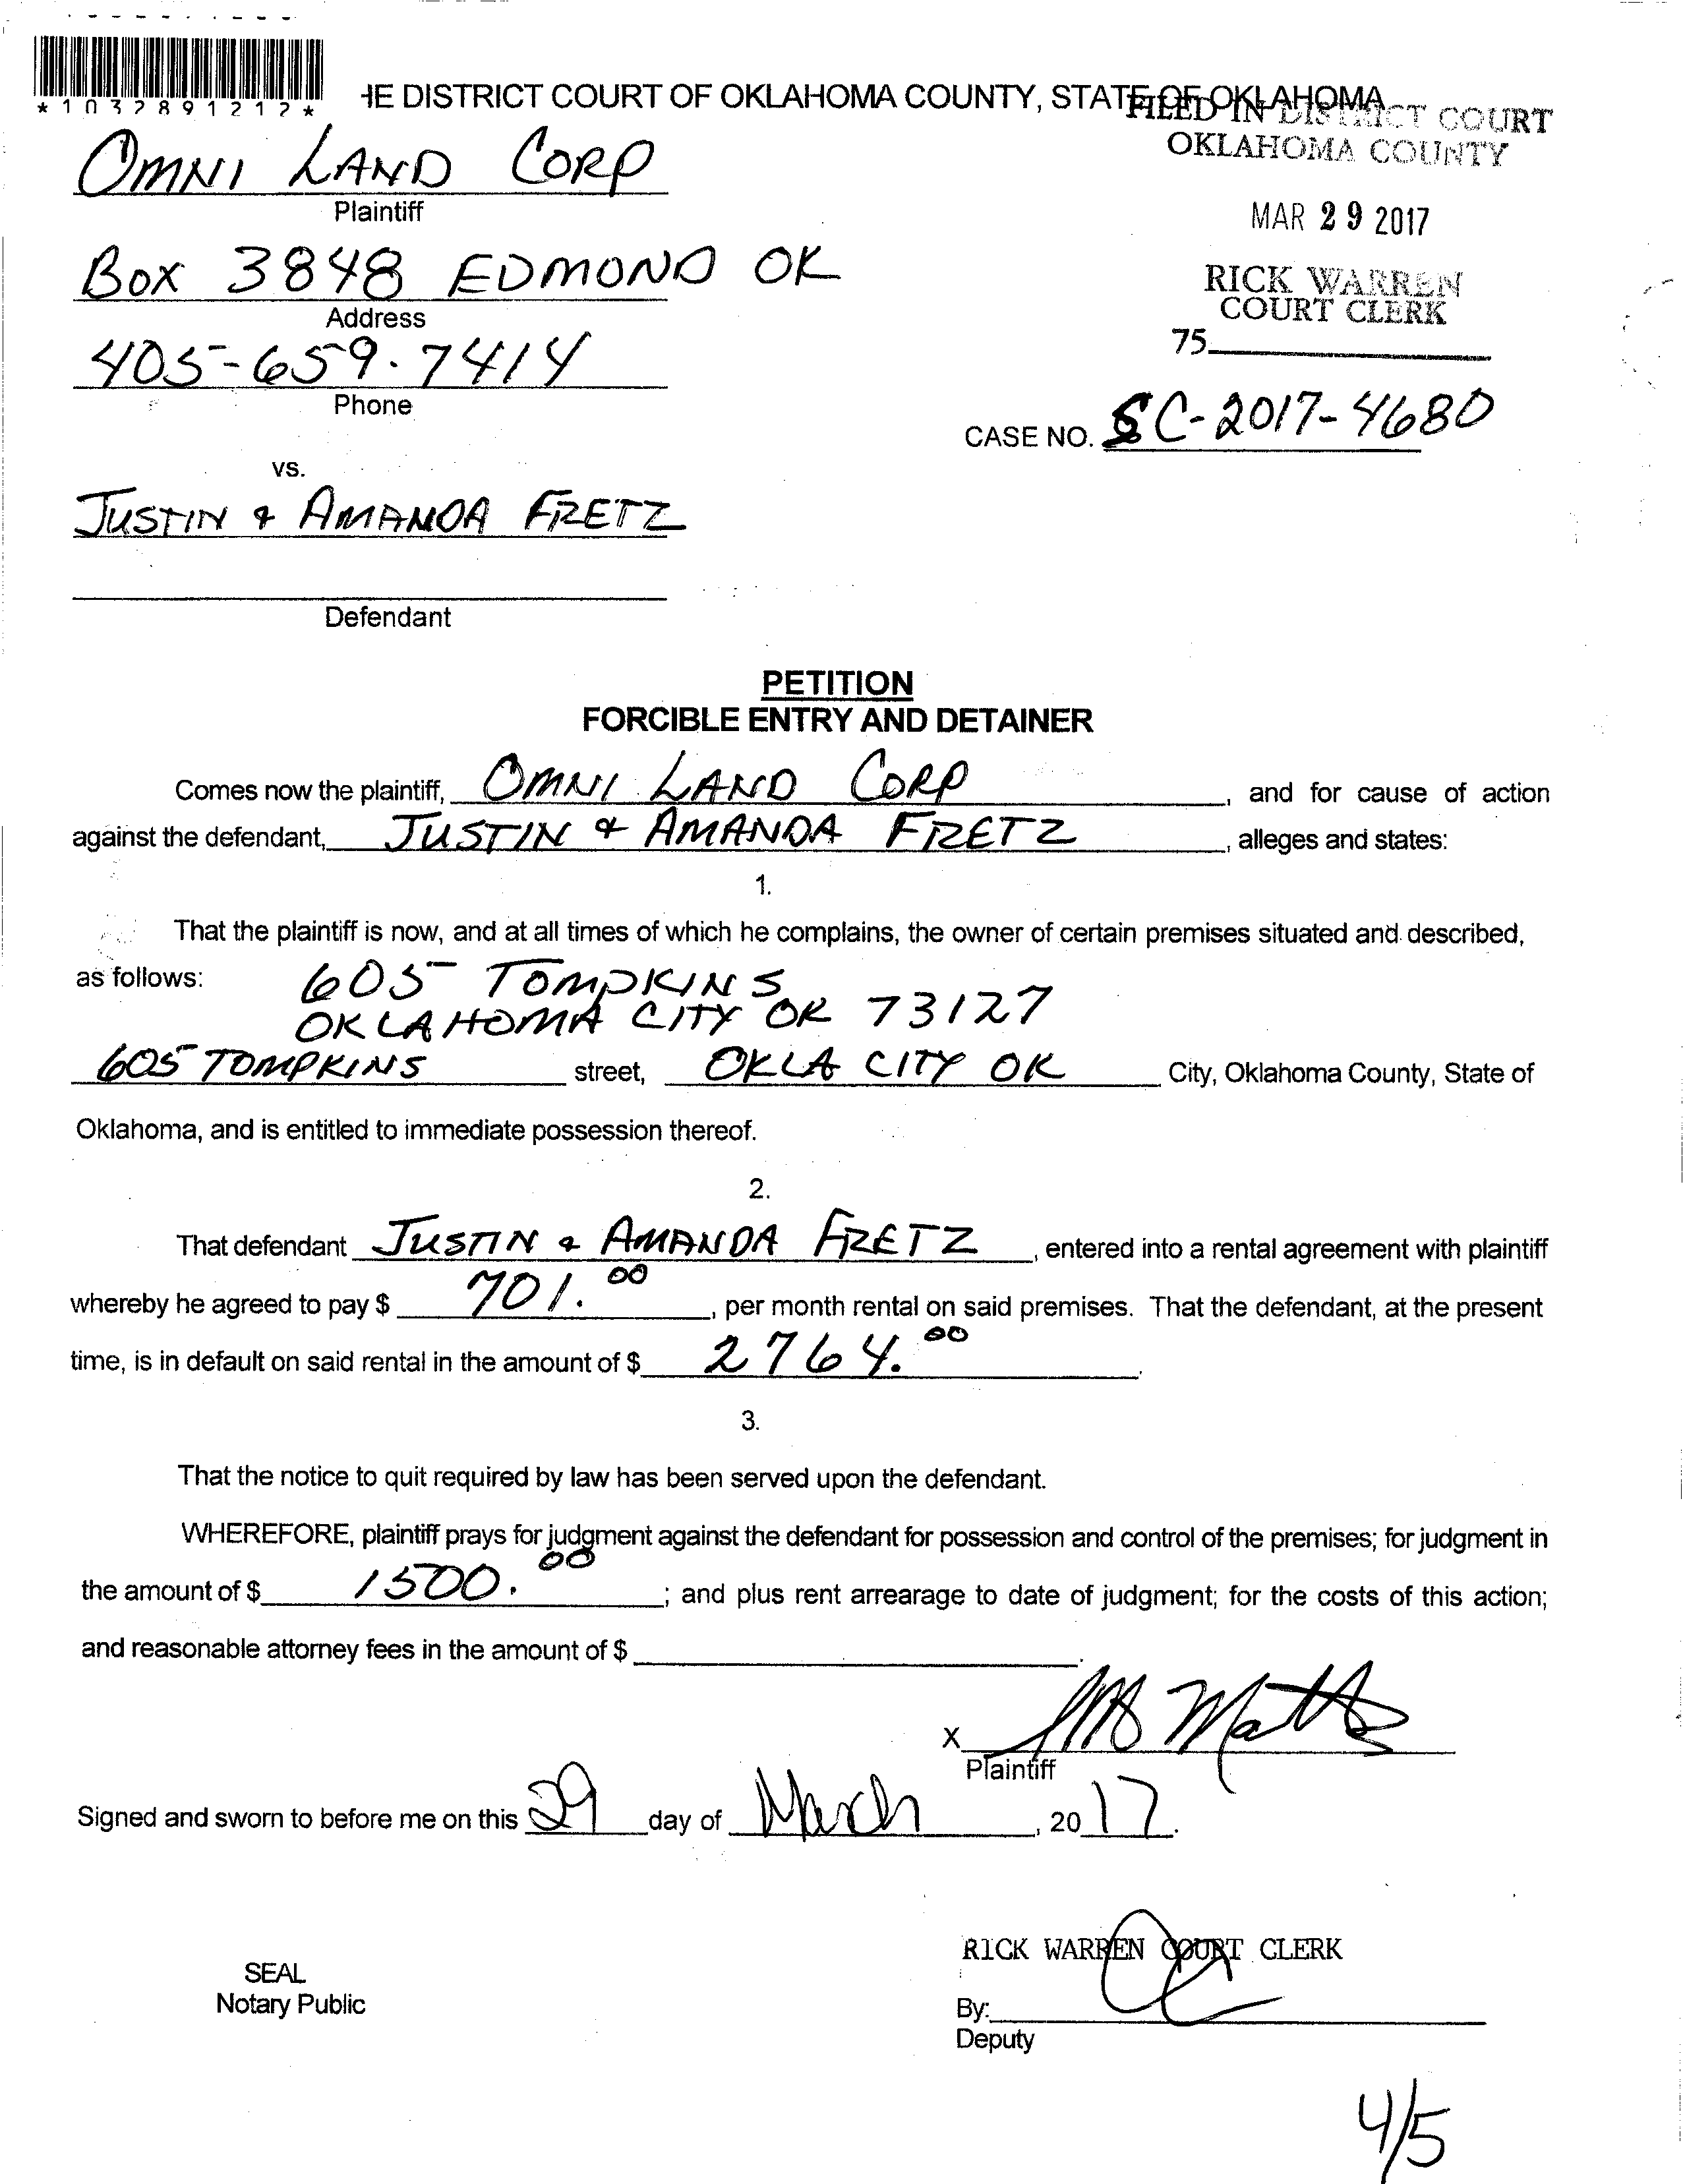 *1032891212*
HE DISTRICT COURT OF OKLAHOMA COUNTY, STATE OF OKLAHOMA
FILED IN DISTRICT COURT
OKLAHOMA COUNTY
OMNI LAND CORP
Plaintiff
MAR 29 2017
BOX 3848 EDMOND OK
Address
RICK WARREN
COURT CLERK
405-659-7414
Phone
75
CASE NO. SC-2017-4680
vs.
JUSTIN & AMANDA FRETZ
Defendant
PETITION
FORCIBLE ENTRY AND DETAINER
Comes now the plaintiff, OMNI LAND CORP, and for cause of action
against the defendant, JUSTIN & AMANDA FRETZ, alleges and states:
1.
That the plaintiff is now, and at all times of which he complains, the owner of certain premises situated and described,
as follows: 605 TOMPKINS
OKLAHOMA CITY OK 73127
605 TOMPKINS street, OKLA CITY OK City, Oklahoma County, State of
Oklahoma, and is entitled to immediate possession thereof.
2.
That defendant JUSTIN & AMANDA FRETZ, entered into a rental agreement with plaintiff
whereby he agreed to pay $ 701.00, per month rental on said premises. That the defendant, at the present
time, is in default on said rental in the amount of $ 2764.00.
3.
That the notice to quit required by law has been served upon the defendant.
WHEREFORE, plaintiff prays for judgment against the defendant for possession and control of the premises; for judgment in
the amount of $ 1500.00; and plus rent arrearage to date of judgment; for the costs of this action;
and reasonable attorney fees in the amount of $ .
X
Plaintiff
Signed and sworn to before me on this 29 day of March, 2017.
RICK WARREN COURT CLERK
SEAL
Notary Public
By:
Deputy
4/5